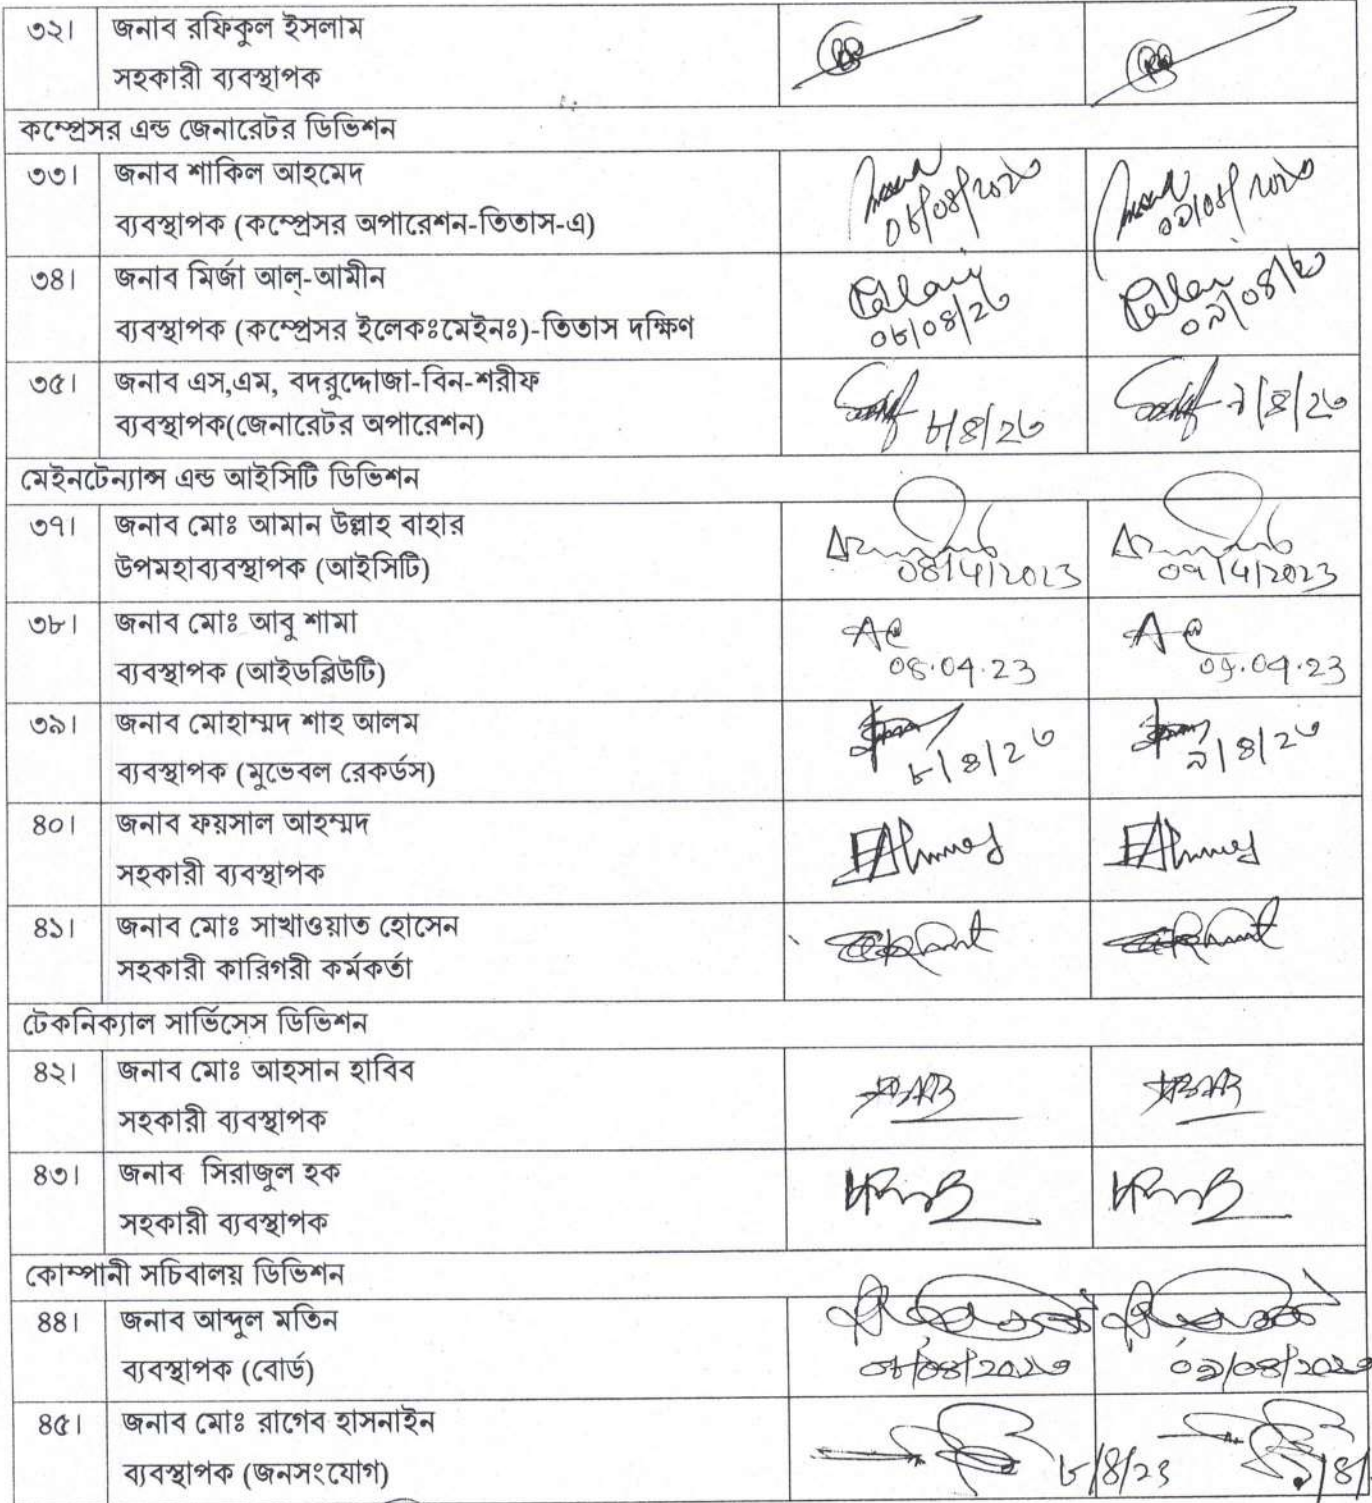 ৩২। জনাব রফিকুল ইসলাম
সহকারী ব্যবস্থাপক
কম্প্রেসর এন্ড জেনারেটর ডিভিশন
৩৩। জনাব শাকিল আহমেদ
ব্যবস্থাপক (কম্প্রেসর অপারেশন-তিতাস-এ)
৩৪। জনাব মির্জা আল্-আমীন
ব্যবস্থাপক (কম্প্রেসর ইলেকঃমেইনঃ)-তিতাস দক্ষিণ
৩৫। জনাব এস,এম, বদরুদ্দোজা-বিন-শরীফ
ব্যবস্থাপক(জেনারেটর অপারেশন)
৮/৪/২৩ ৯/৪/২৩
মেইনটেন্যান্স এন্ড আইসিটি ডিভিশন
৩৭। জনাব মোঃ আমান উল্লাহ বাহার
উপমহাব্যবস্থাপক (আইসিটি)
08/4/2023 09/4/2023
৩৮। জনাব মোঃ আবু শামা
ব্যবস্থাপক (আইডব্লিউটি)
08.04.23 09.04.23
৩৯। জনাব মোহাম্মদ শাহ আলম
ব্যবস্থাপক (মুভেবল রেকর্ডস)
৮/৪/২৩ ৯/৪/২৩
৪০। জনাব ফয়সাল আহম্মদ
সহকারী ব্যবস্থাপক
৪১। জনাব মোঃ সাখাওয়াত হোসেন
সহকারী কারিগরী কর্মকর্তা
টেকনিক্যাল সার্ভিসেস ডিভিশন
৪২। জনাব মোঃ আহসান হাবিব
সহকারী ব্যবস্থাপক
৪৩। জনাব সিরাজুল হক
সহকারী ব্যবস্থাপক
কোম্পানী সচিবালয় ডিভিশন
৪৪। জনাব আব্দুল মতিন
ব্যবস্থাপক (বোর্ড)
০৮/০৪/২০২৩ ০৯/০৪/২০২৩
৪৫। জনাব মোঃ রাগেব হাসনাইন
ব্যবস্থাপক (জনসংযোগ)
৮/৪/২৩